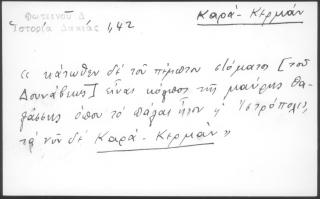 Φωτεινοῦ Δ
Ἱστορία Δακίας 1,42
Καρά - Κερμάν
« κάτωθεν δὲ τοῦ πέμπτου στόματος [τοῦ
Δουνάβεως] εἶναι κόλπος τῆς μαύρης θα-
λάσσης ὅπου τὸ πάλαι ἦτον ἡ Ἰστρόπολις,
τὰ νῦν δὲ Καρά - Κερμάν »